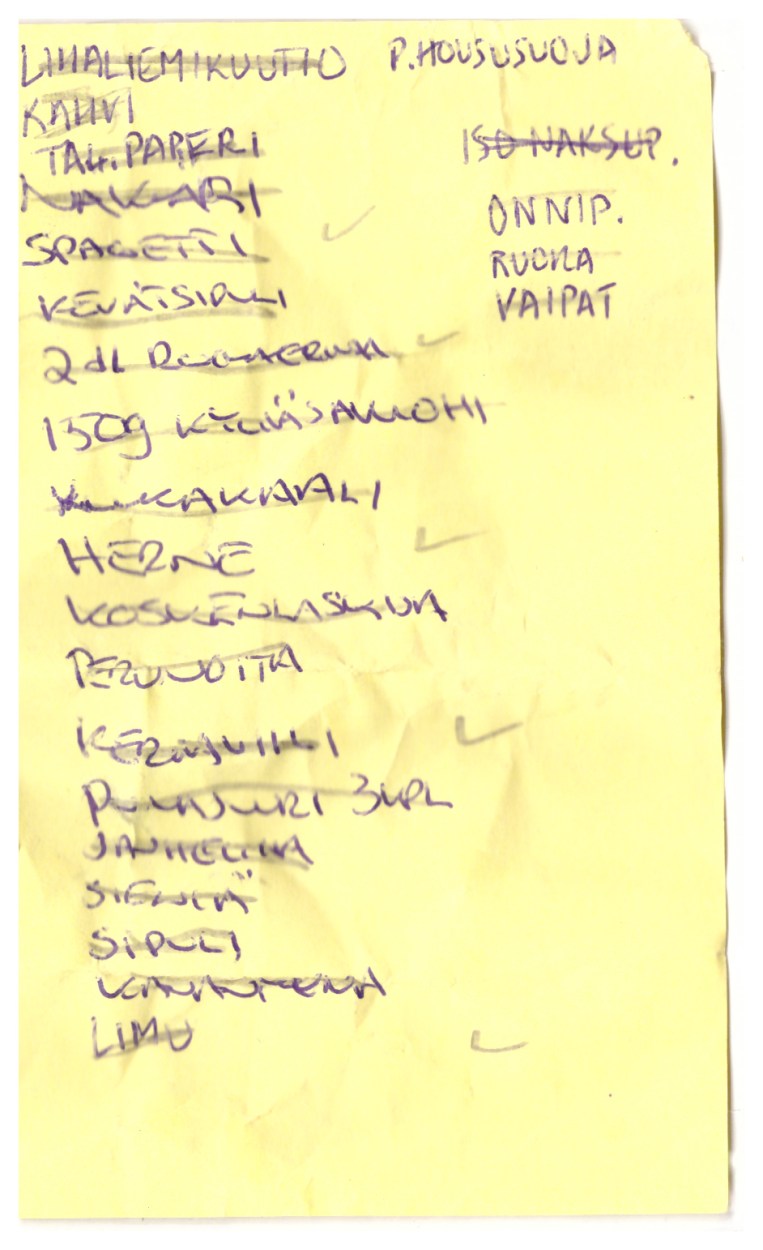 LIHALIEMIKUUTIO
KAHVI
TAL.PAPERI
NAKARI
SPAGETTI
KEVÄTSIPULI
2 dL RUOKAKERMAA
150g KYLMÄSAVULOHI
KUKKAKAALI
HERNE
KOSKENLASKIJA
PERUNOITA
KERMAVIILI
PUNAJUURI 3KPL
JAUHELIHA
SIENIÄ
SIPULI
KANANMUNA
LIMU
P.HOUSUSUOJA
ISO NAKSUP.
ONNIP.
RUOKA
VAIPAT